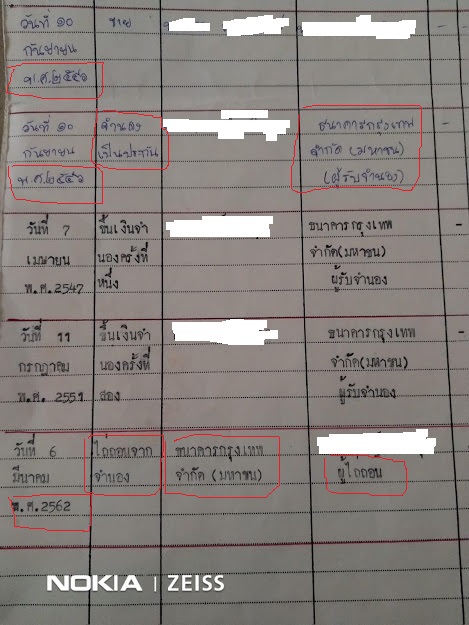 วันที่ ๑๐
กันยายน
พ.ศ.๒๕๔๖
ขาย
-
วันที่ ๑๐
กันยายน
พ.ศ.๒๕๔๖
จำนอง
เป็นประกัน
ธนาคารกรุงเทพ
จำกัด (มหาชน)
(ผู้รับจำนอง)
-
วันที่ 7
เมษายน
พ.ศ.2547
ขึ้นเงินจำ
นองครั้งที่
หนึ่ง
ธนาคารกรุงเทพ
จำกัด(มหาชน)
ผู้รับจำนอง
-
วันที่ 11
กรกฎาคม
พ.ศ. 2551
ขึ้นเงินจำ
นองครั้งที่
สอง
ธนาคารกรุงเทพ
จำกัด(มหาชน)
ผู้รับจำนอง
-
วันที่ 6
มีนาคม
พ.ศ.2562
ไถ่ถอนจาก
จำนอง
ธนาคารกรุงเทพ
จำกัด (มหาชน)
ผู้ไถ่ถอน
NOKIA | ZEISS